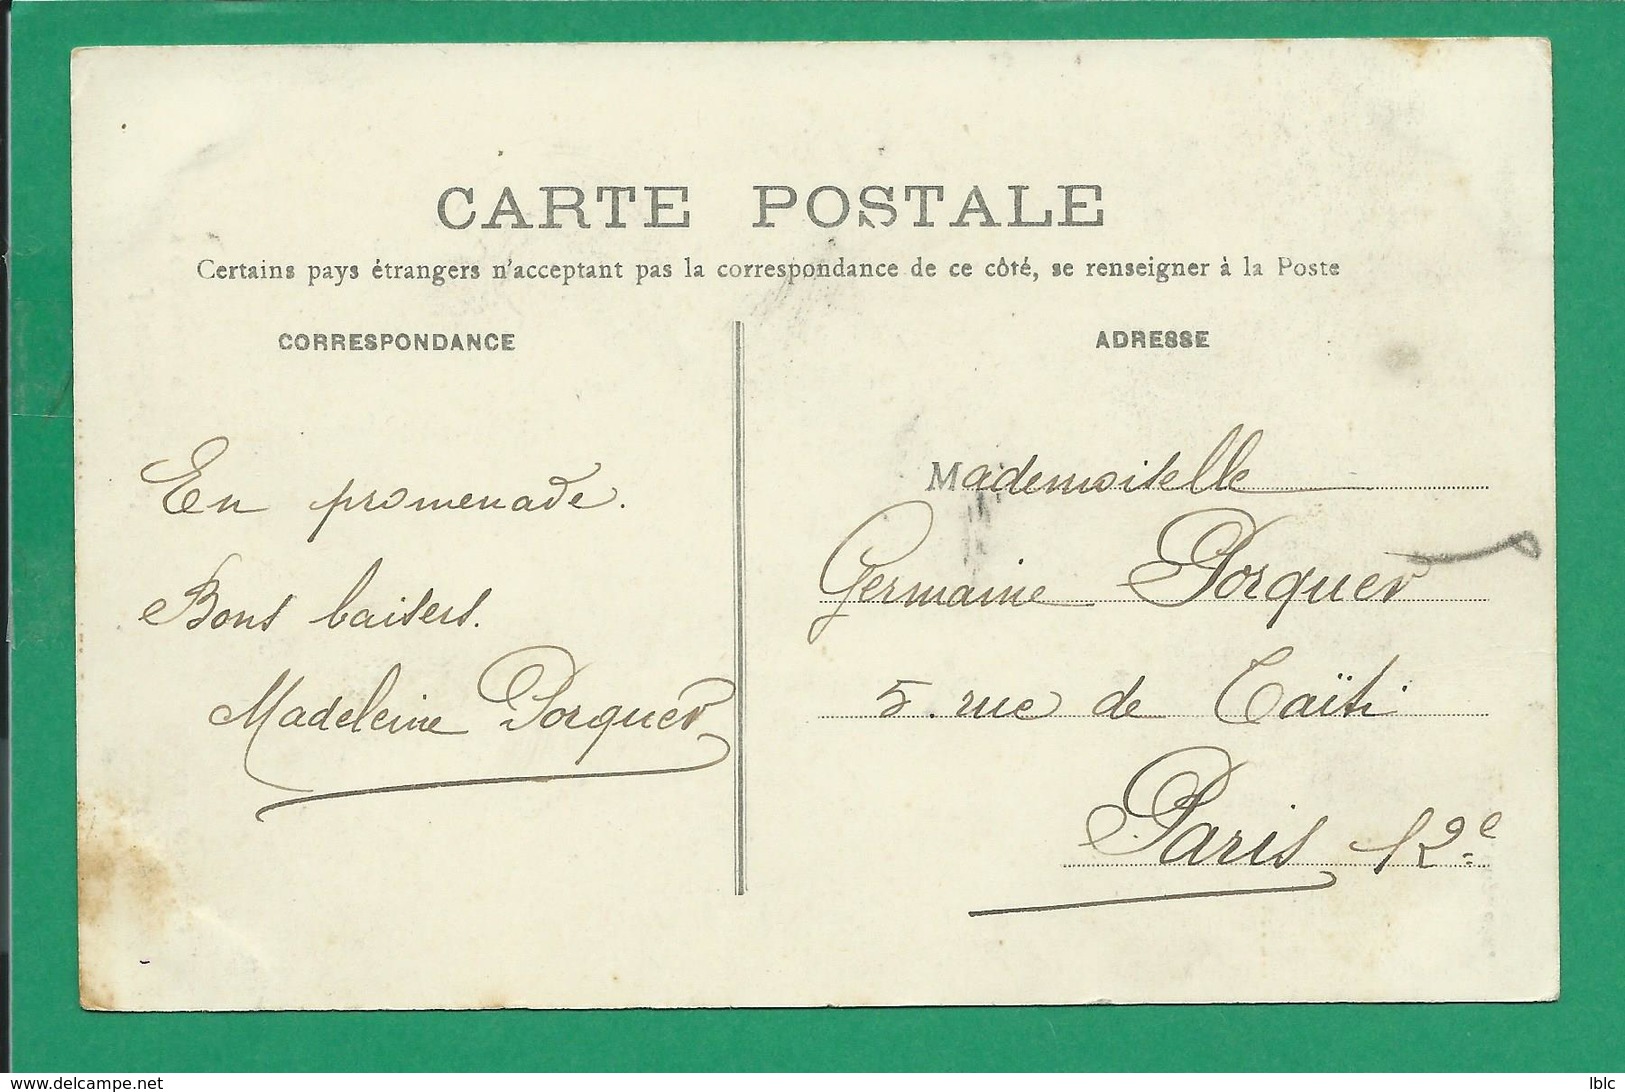 CARTE POSTALE
Certains pays étrangers n'acceptant pas la correspondance de ce côté, se renseigner à la Poste
CORRESPONDANCE
En promenade.
Bons baisers.
Madeleine Porquer
ADRESSE
Mademoiselle
Germaine Porquer
5. rue de Taïti
Paris 12e
www.delcampe.net
lblc